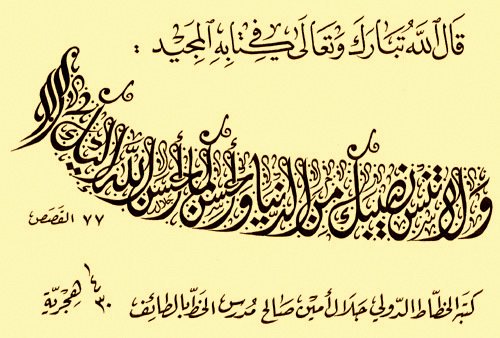 قَالَ اللهُ تَبَارَكَ وَتَعَالَى فِي كِتَابِهِ المَجِيدِ :
وَلا تنس نصيبك من الدنيا وأحسن كما أحسن الله إليك
جلال
٧٧ القَصَص
كتبه الخطاط الدّولي جَلال أمين صَالح مُدرس الخط بالطائف ١٤٣٠ هِجْريّة